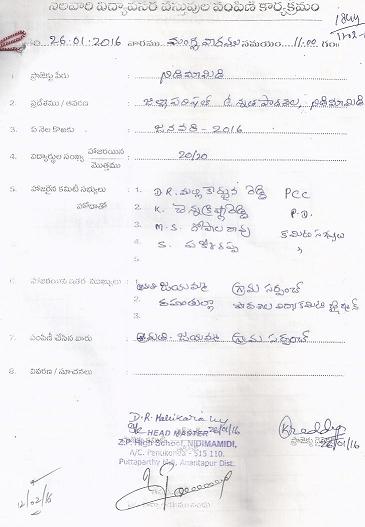 నెలవారి విద్యావసర వస్తువుల పంపిణీ కార్యక్రమం
తేది 26.01.2016 వారము మంగళవారము సమయం 11.00 గం॥
1. ప్రాజెక్టు పేరు : నిడిమామిడి
2. ప్రదేశము / ఆవరణ : జిల్లా పరిషత్ ఉన్నత పాఠశాల, నిడిమామిడి
3. ఏ నెల కొఱకు : జనవరి - 2016
4. విద్యార్థుల సంఖ్య హాజరయిన / మొత్తము : 20/20
5. హాజరైన కమిటీ సభ్యులు : 1. D.R. మల్లికార్జున రెడ్డి PCC
హోదాతో 2. K. చెన్నకృష్ణారెడ్డి P.D.
3. M.S. గోపాల కమిటీ సభ్యులు
4. S.
5.
6. హాజరయిన ఇతర సభ్యులు : 1. శ్రీమతి జయమ్మ గ్రామ సర్పంచ్
2. రహంతుల్లా పాఠశాల విద్యాకమిటీ చైర్మన్
3.
7. పంపిణీ చేసిన వారు : శ్రీమతి. జయమ్మ గ్రామ సర్పంచ్
8. వివరణ / సూచనలు :
D.R. Mallikarjuna
26/1/16
HEAD MASTER
Z.P. High School, NIDIMAMIDI,
A/C. Penukonda - 515 110.
Puttaparthy M.D, Anantapur Dist.
K Reddy
26/01/16
12/02/16